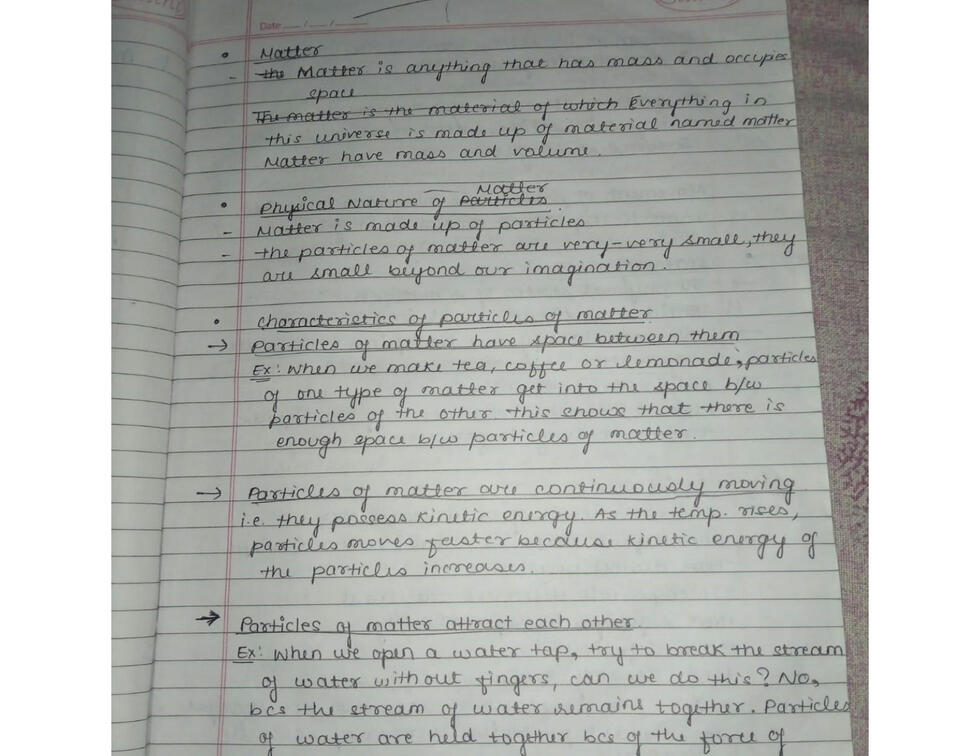 Date __/__/__
• Matter
- the Matter is anything that has mass and occupies
space
The matter is the material of which Everything in
this universe is made up of material named matter
Matter have mass and volume.
Matter
• Physical Nature of Particles.
- Matter is made up of particles
- the particles of matter are very-very small, they
are small beyond our imagination.
• characteristics of particles of matter
→ Particles of matter have space between them
Ex: When we make tea, coffee or lemonade, particles
of one type of matter get into the space b/w
particles of the other this shows that there is
enough space b/w particles of matter.
→ Particles of matter are continuously moving
i.e. they possess kinetic energy. As the temp. rises,
particles moves faster because kinetic energy of
the particles increases.
→ Particles of matter attract each other.
Ex: When we open a water tap, try to break the stream
of water without fingers, can we do this? No,
bcs the stream of water remains together. Particles
of water are held together bcs of the force of